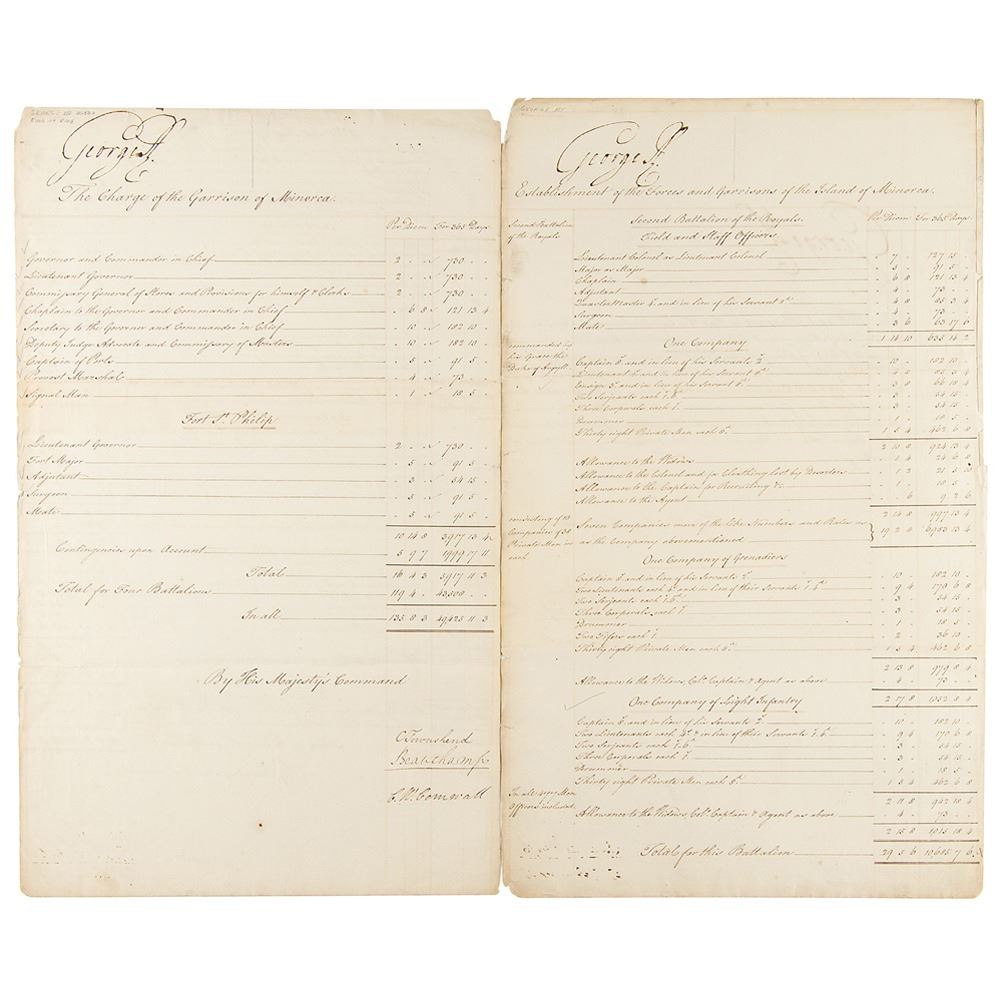 George R.
The Charge of the Garrison of Minorca.
Per Diem For 365 Days
Governor and Commander in Chief 2 . . 730 . .
Lieutenant Governor 2 . . 730 . .
Commissary General of Stores and Provisions for himself & Clerks 2 . . 730 . .
Chaplain to the Governor and Commander in Chief . 6 8 121 13 4
Secretary to the Governor and Commander in Chief . 10 . 182 10 .
Deputy Judge Advocate and Commissary of Musters . 10 . 182 10 .
Captain of Ports . 5 . 91 5 .
Provost Marshal . 4 . 73 . .
Signal Man . 1 . 18 5 .
Fort St. Philip
Lieutenant Governor 2 . . 730 . .
Fort Major . 5 . 91 5 .
Adjutant . 3 . 54 15 .
Surgeon . 5 . 91 5 .
Mate . 5 . 91 5 .
10 14 8 3917 13 4
Contingencies upon Account 5 9 7 1999 17 11
Total 16 4 3 5917 11 3
Total for Four Battalions 119 4 . 43,508 . .
In all 135 8 3 49,425 11 3
By His Majesty's Command
C Townshend
Beauchamp
C. W. Cornwall
George R.
Establishment of the Forces and Garrisons of the Island of Minorca.
Second Battalion of the Royals
Second Battalion of the Royals.
Field and Staff Officers
Per Diem For 365 Days
Lieutenant Colonel as Lieutenant Colonel . 7 . 127 15 .
Major as Major . 5 . 91 5 .
Chaplain . 6 8 121 13 4
Adjutant . 4 . 73 . .
Quarter Master and in lieu of his Servant . 4 8 85 3 4
Surgeon . 4 . 73 . .
Mate . 3 6 63 17 6
1 14 10 635 14 2
commanded by his Grace the Duke of Argyll
One Company
Captain and in lieu of his Servants . 10 . 182 10 .
Lieutenant and in lieu of his Servant . 4 8 85 3 4
Ensign and in lieu of his Servant . 3 8 66 18 4
Two Serjeants each 1.6 . 3 . 54 15 .
Three Corporals each 1 . 3 . 54 15 .
Drummer . 1 . 18 5 .
Thirty eight Private Men each 8d 1 5 4 462 6 8
2 10 8 924 13 4
Allowance to the Widows . 1 4 24 6 8
Allowance to the Colonel and for Cloathing lost by Deserters . 1 2 21 5 10
Allowance to the Captain for Recruiting &c . 1 . 18 5 .
Allowance to the Agent . . 6 9 2 6
2 14 8 997 13 4
consisting of 10 Companies of 38 Private Men in each
Seven Companies more of the like Numbers and Rates as the Company abovementioned 19 2 8 6983 13 4
One Company of Grenadiers
Captain and in lieu of his Servants . 10 . 182 10 .
Two Lieutenants each and in lieu of their Servants . 9 4 170 6 8
Two Serjeants each 1.6 . 3 . 54 15 .
Three Corporals each 1 . 3 . 54 15 .
Drummer . 1 . 18 5 .
Two Fifers each 1 . 2 . 36 10 .
Thirty eight Private Men each 8d 1 5 4 462 6 8
2 13 8 979 8 4
Allowance to the Widows, Col. Captain & Agent as above . 4 . 73 . .
2 17 8 1052 8 4
One Company of Light Infantry
Captain and in lieu of his Servants . 10 . 182 10 .
Two Lieutenants each & in lieu of their Servants . 9 4 170 6 8
Two Serjeants each 1.6 . 3 . 54 15 .
Three Corporals each 1 . 3 . 54 15 .
Drummer . 1 . 18 5 .
Thirty eight Private Men each 8d 1 5 4 462 6 8
2 11 8 942 18 4
In all Men Officers included
Allowance to the Widows, Col. Captain & Agent as above . 4 . 73 . .
2 15 8 1015 18 4
Total for this Battalion 29 5 6 10,685 7 6